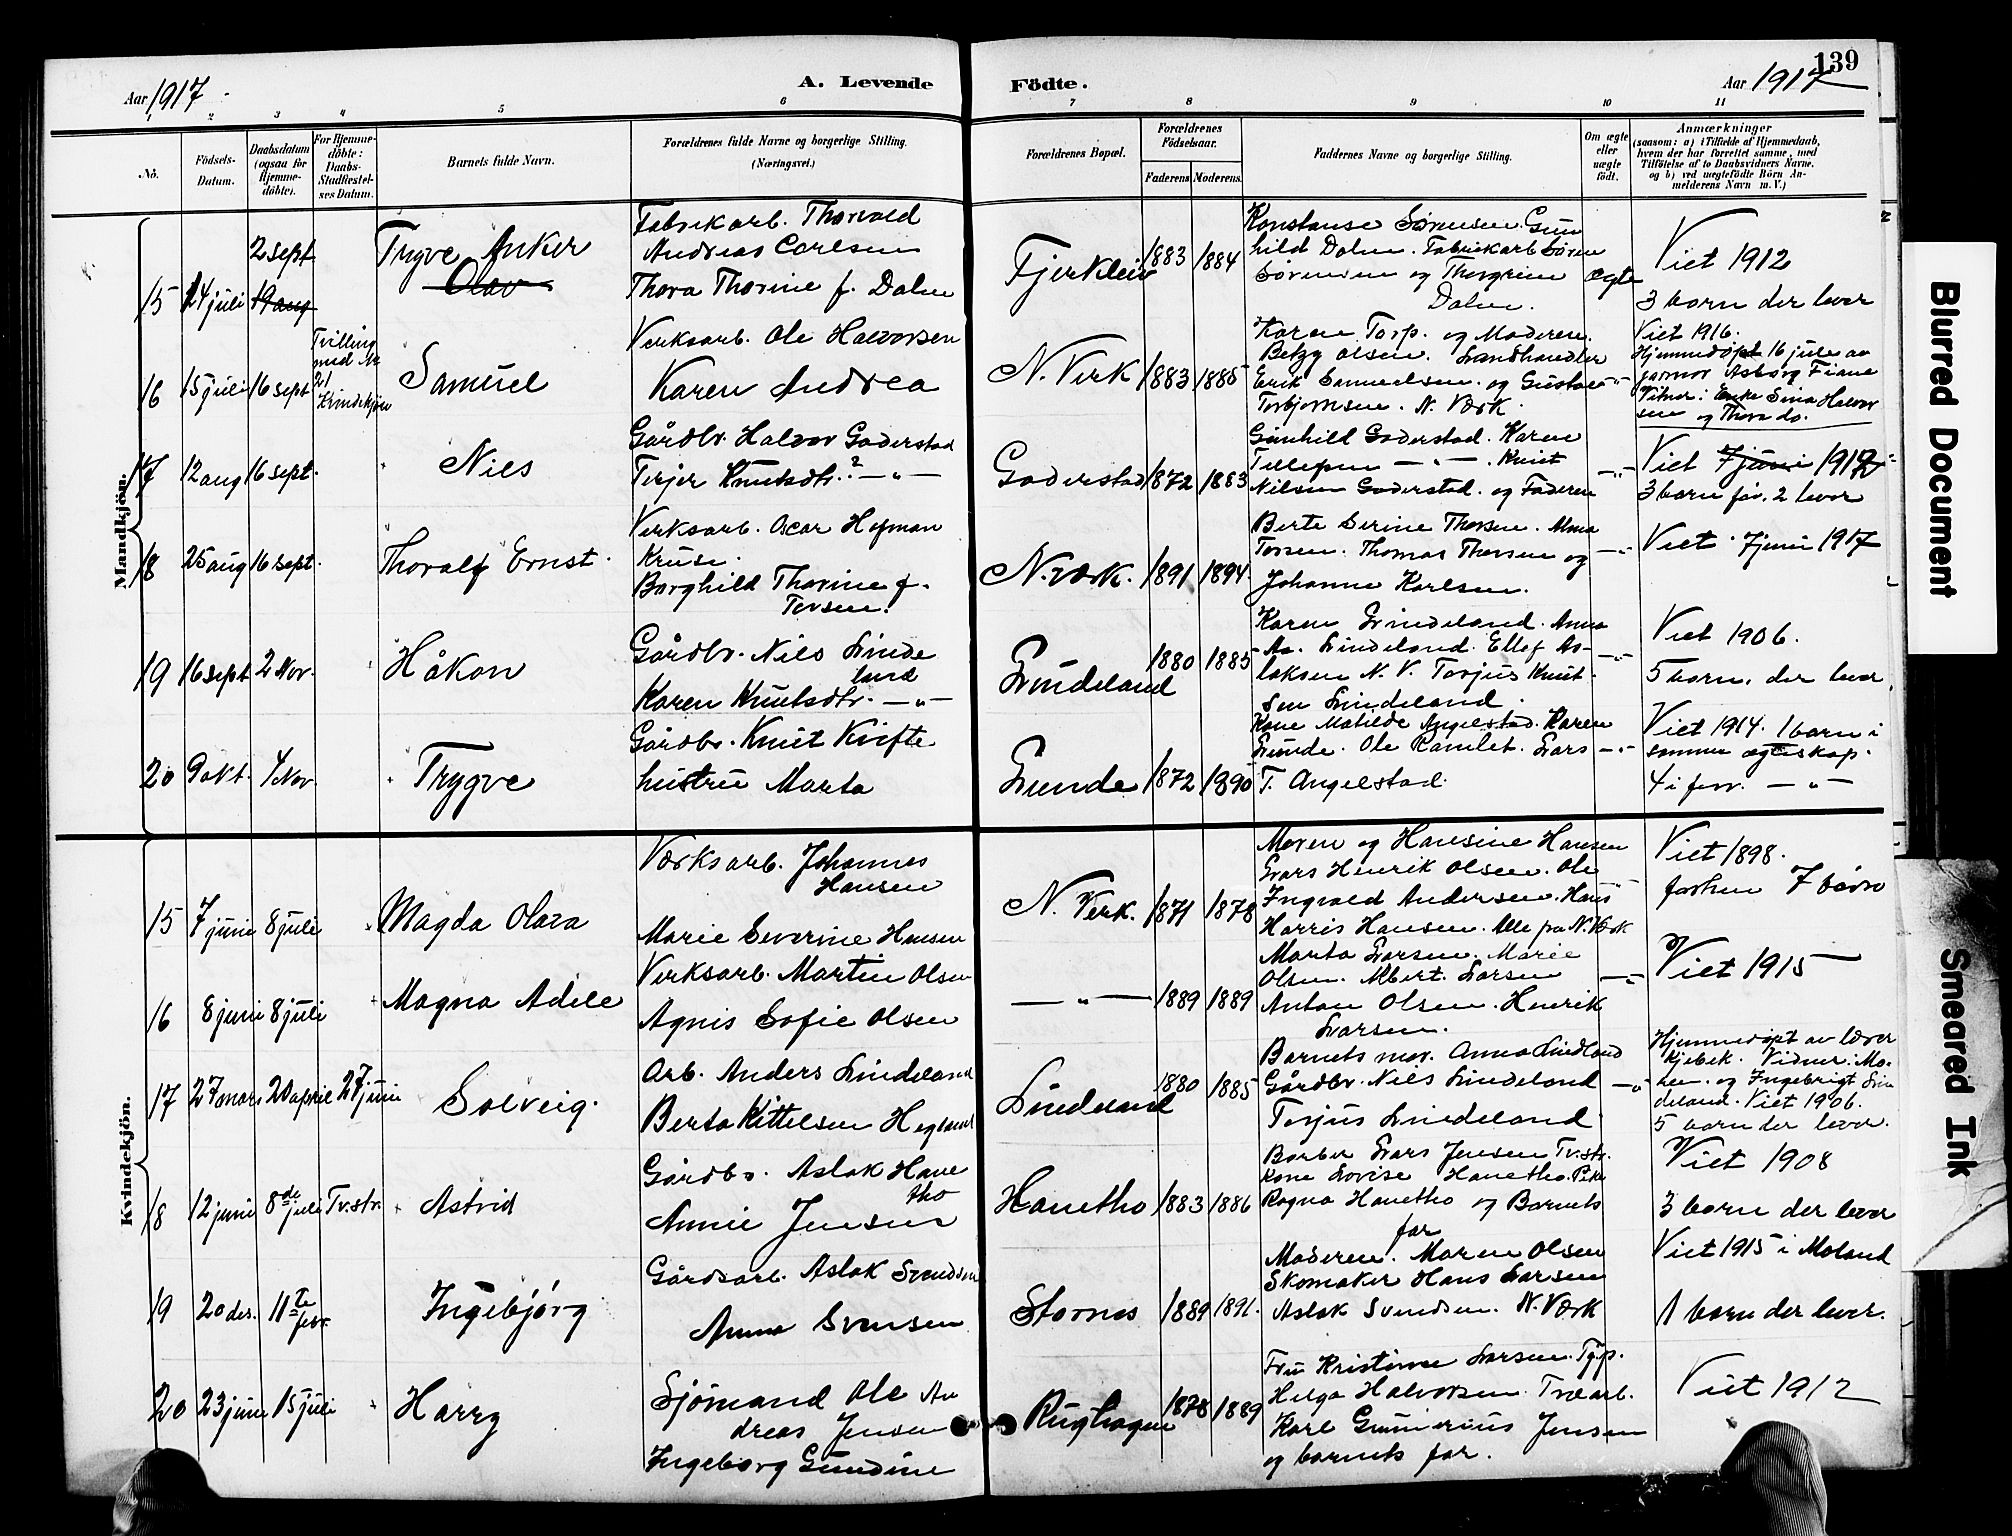 139
Aar 1917
A. Levende
Födte.
Aar 1917
1 2 3 4 5 6 7 8 9 10 11
No.
Födsels-Datum.
Daabsdatum (ogsaa for Hjemme-döbte).
For Hjemme-döbte: Daabs-Stadfestel-ses Datum.
Barnets fulde Navn.
Forældrenes fulde Navne og borgerlige Stilling. (Næringsvei.)
Forældrenes Bopæl.
Forældrenes Födselsaar.
Faderens Moderens
Faddernes Navne og borgerlige Stilling.
Om ægte eller uægte födt.
Anmærkninger
(saasom: a) i Tilfælde af Hjemmedaab,
hvem der har forrettet samme, med
Tilföielse af to Daabsvidners Navne,
og b) ved uægtefödte Börn An-
melderens Navn m. V.)
Mandkjön.
15 24 juli 19 aug 2 sept
Trygve Anker
Olav
Fabrikarb. Thorvald
Andreas Carlsen
Thora Thorine f. Dalen
Fjerkleiv 1883 1884
Konstanse Sørensen. Gun
hild Dalen. Fabrikarb Søren
Sørensen og Thorgrim
Dalen.
Ægte
Viet 1912
3 barn der lever
16 15 juli 16 sept
Tvilling
med Nr
21
Kvindekjøn
Samuel
Verksarb. Ole Halvorsen
Karen Andrea
N. Verk 1883 1885
Karen Torp. og Moderen.
Betzy Olsen. Landhandler
Erik Samuelsen. og Gustav
Torbjørnsen. N. Værk.
Viet 1916.
Hjemmedøpt 16 jule av
farmor Asborg Fiane
Vitner: Enke Sina Halvor
sen og Thora do.
17 12 aug 16 sept.
Niels
Gårdbr. Halvor Goderstad
Terjer Knutsdtr.? — " —
Goderstad 1872 1883
Gunhild Goderstad. Karen
Tellefsen — " — . Knut
Nilsen Goderstad. og Faderen
— " —
Viet 7 juni 1912
3 barn før. 2 lever
18 25 aug 16 sept.
Thoralf Ernst.
Verksarb. Oscar Hofman
Kruse.
Borghild Thorine f.
Torsen.
N. Værk. 1891 1894
Berte Serine Thorsen. Alma
Torsen. Thomas Thorsen og
Johanne Karlsen.
— " —
Viet. 7 juni 1917
19 16 sept 2 Nov.
Håkon
Gårdbr. Nils Linde
land
Karen Knutsdtr. — " —
Lindeland 1880 1885
Karen Lindeland. Anna
As. Lindeland. Ellef As-
laksen N. V. Torjus Knut-
sen Lindeland.
— " —
Viet 1906.
5 barn. der lever
20 9 okt. 4 Nov.
Trygve
Gårdbr. Knut Kvifte
hustru Marta
Lunde 1872 1890
Kone Matilde Angelstad. Karen
Lunde. Ole Ramlet. Lars
T. Angelstad.
— " —
Viet 1914. 1 barn i
samme ægteskap.
4 i forr. — " —
Kvindekjön.
15 7 juni 8 juli
Magda Olava
Værksarb. Johannes
Hansen
Marie Severine Hansen
N. Verk. 1871 1878
Moren og Hansine Hansen
Lars Henrik Olsen. Ole
Ingvald Andersen. Hans
Harris Hansen. Alle fra N. Værk
Viet 1898.
forhen 7 børn
16 8 juni 8 juli
Magna Adele
Verksarb. Martin Olsen
Agnis Sofie Olsen
— " — 1889 1889
Marta Larsen. Marie
Olsen. Albert Larsen
Anton Olsen. Henrik
Larsen.
— " —
Viet 1915
17 27 mars 20 april 27 juni
Solveig.
Arb. Anders Lindeland
Berta Kittelsen Hegland
Lindeland 1880 1885
Barnets mor. Anna Lindland
Gårdbr. Nils Lindeland
Torjus Lindeland
— " —
Hjemmedøpt av lærer
Kjebek. Vidner: Mo-
ren. og Ingebrigt Lin
deland. Viet 1906.
5 barn der lever.
18 12 juni 8de juli Tv.str.
Astrid
Gårdbr. Aslak Hane
tho
Annie Jensen
Hanetho 1883 1886
Barber Lars Jensen Tv.str.
Kone Lovise Hanetho. Pike
Ragna Hanetho og Barnets
far
Viet 1908
3 barn der lever
19 20 des. 11te febr.
Ingebjørg
Gårdsarb. Aslak Svendsen
Anna Svensen
Stornes 1889 1891.
Moderen. Maren Olsen
Skomaker Hans Larsen
Aslak Svendsen. N. Værk
Viet 1915 i Moland
1 barn der lever.
20 23 juni 15 juli
Harry
Sjømand Ole An
dreas Jensen
Ingeborg Gundine
Rughagen 1878 1889
Fru Kristine Larsen. Typ.
Helga Halvorsen. Træarb.
Karl Gunnerius Jensen
og barnets far.
Viet 1912
Blurred Document
Smeared Ink